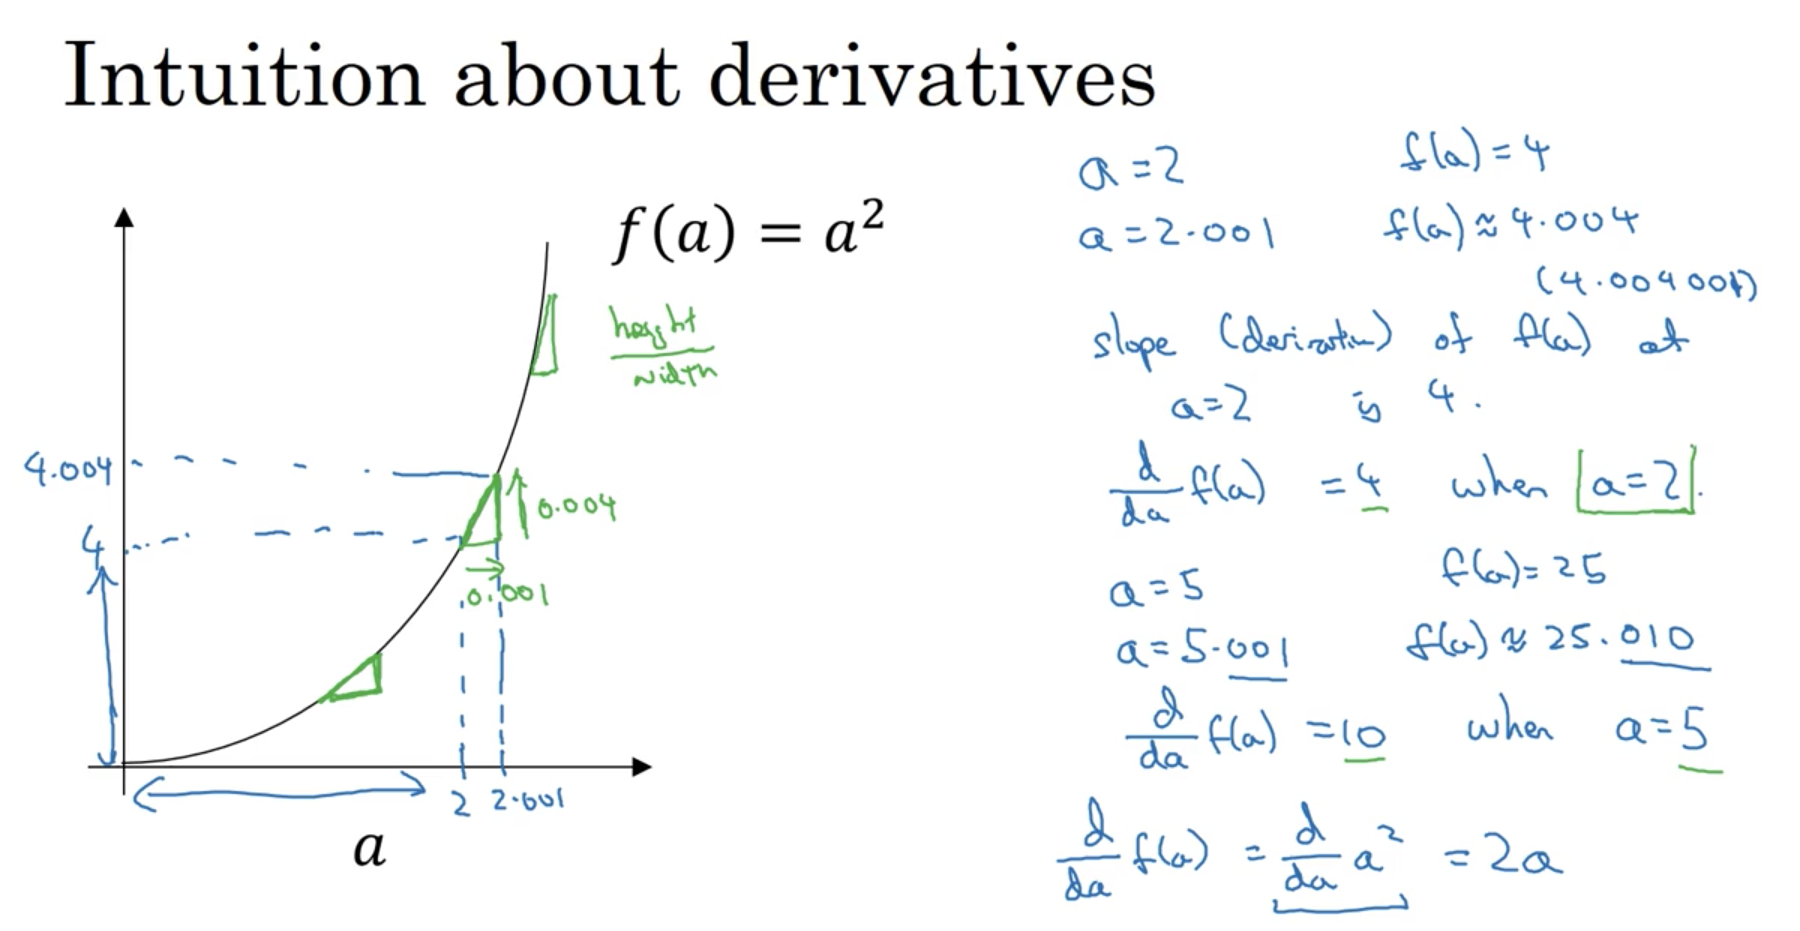 Intuition about derivatives
f(a) = a²
height
width
4.004
4
0.004
0.001
2 2.001
a
a = 2 f(a) = 4
a = 2.001 f(a) ≈ 4.004
(4.004001)
slope (derivative) of f(a) at
a=2 is 4.
d/da f(a) = 4 when a=2.
a = 5 f(a) = 25
a = 5.001 f(a) ≈ 25.010
d/da f(a) = 10 when a = 5
d/da f(a) = d/da a² = 2a